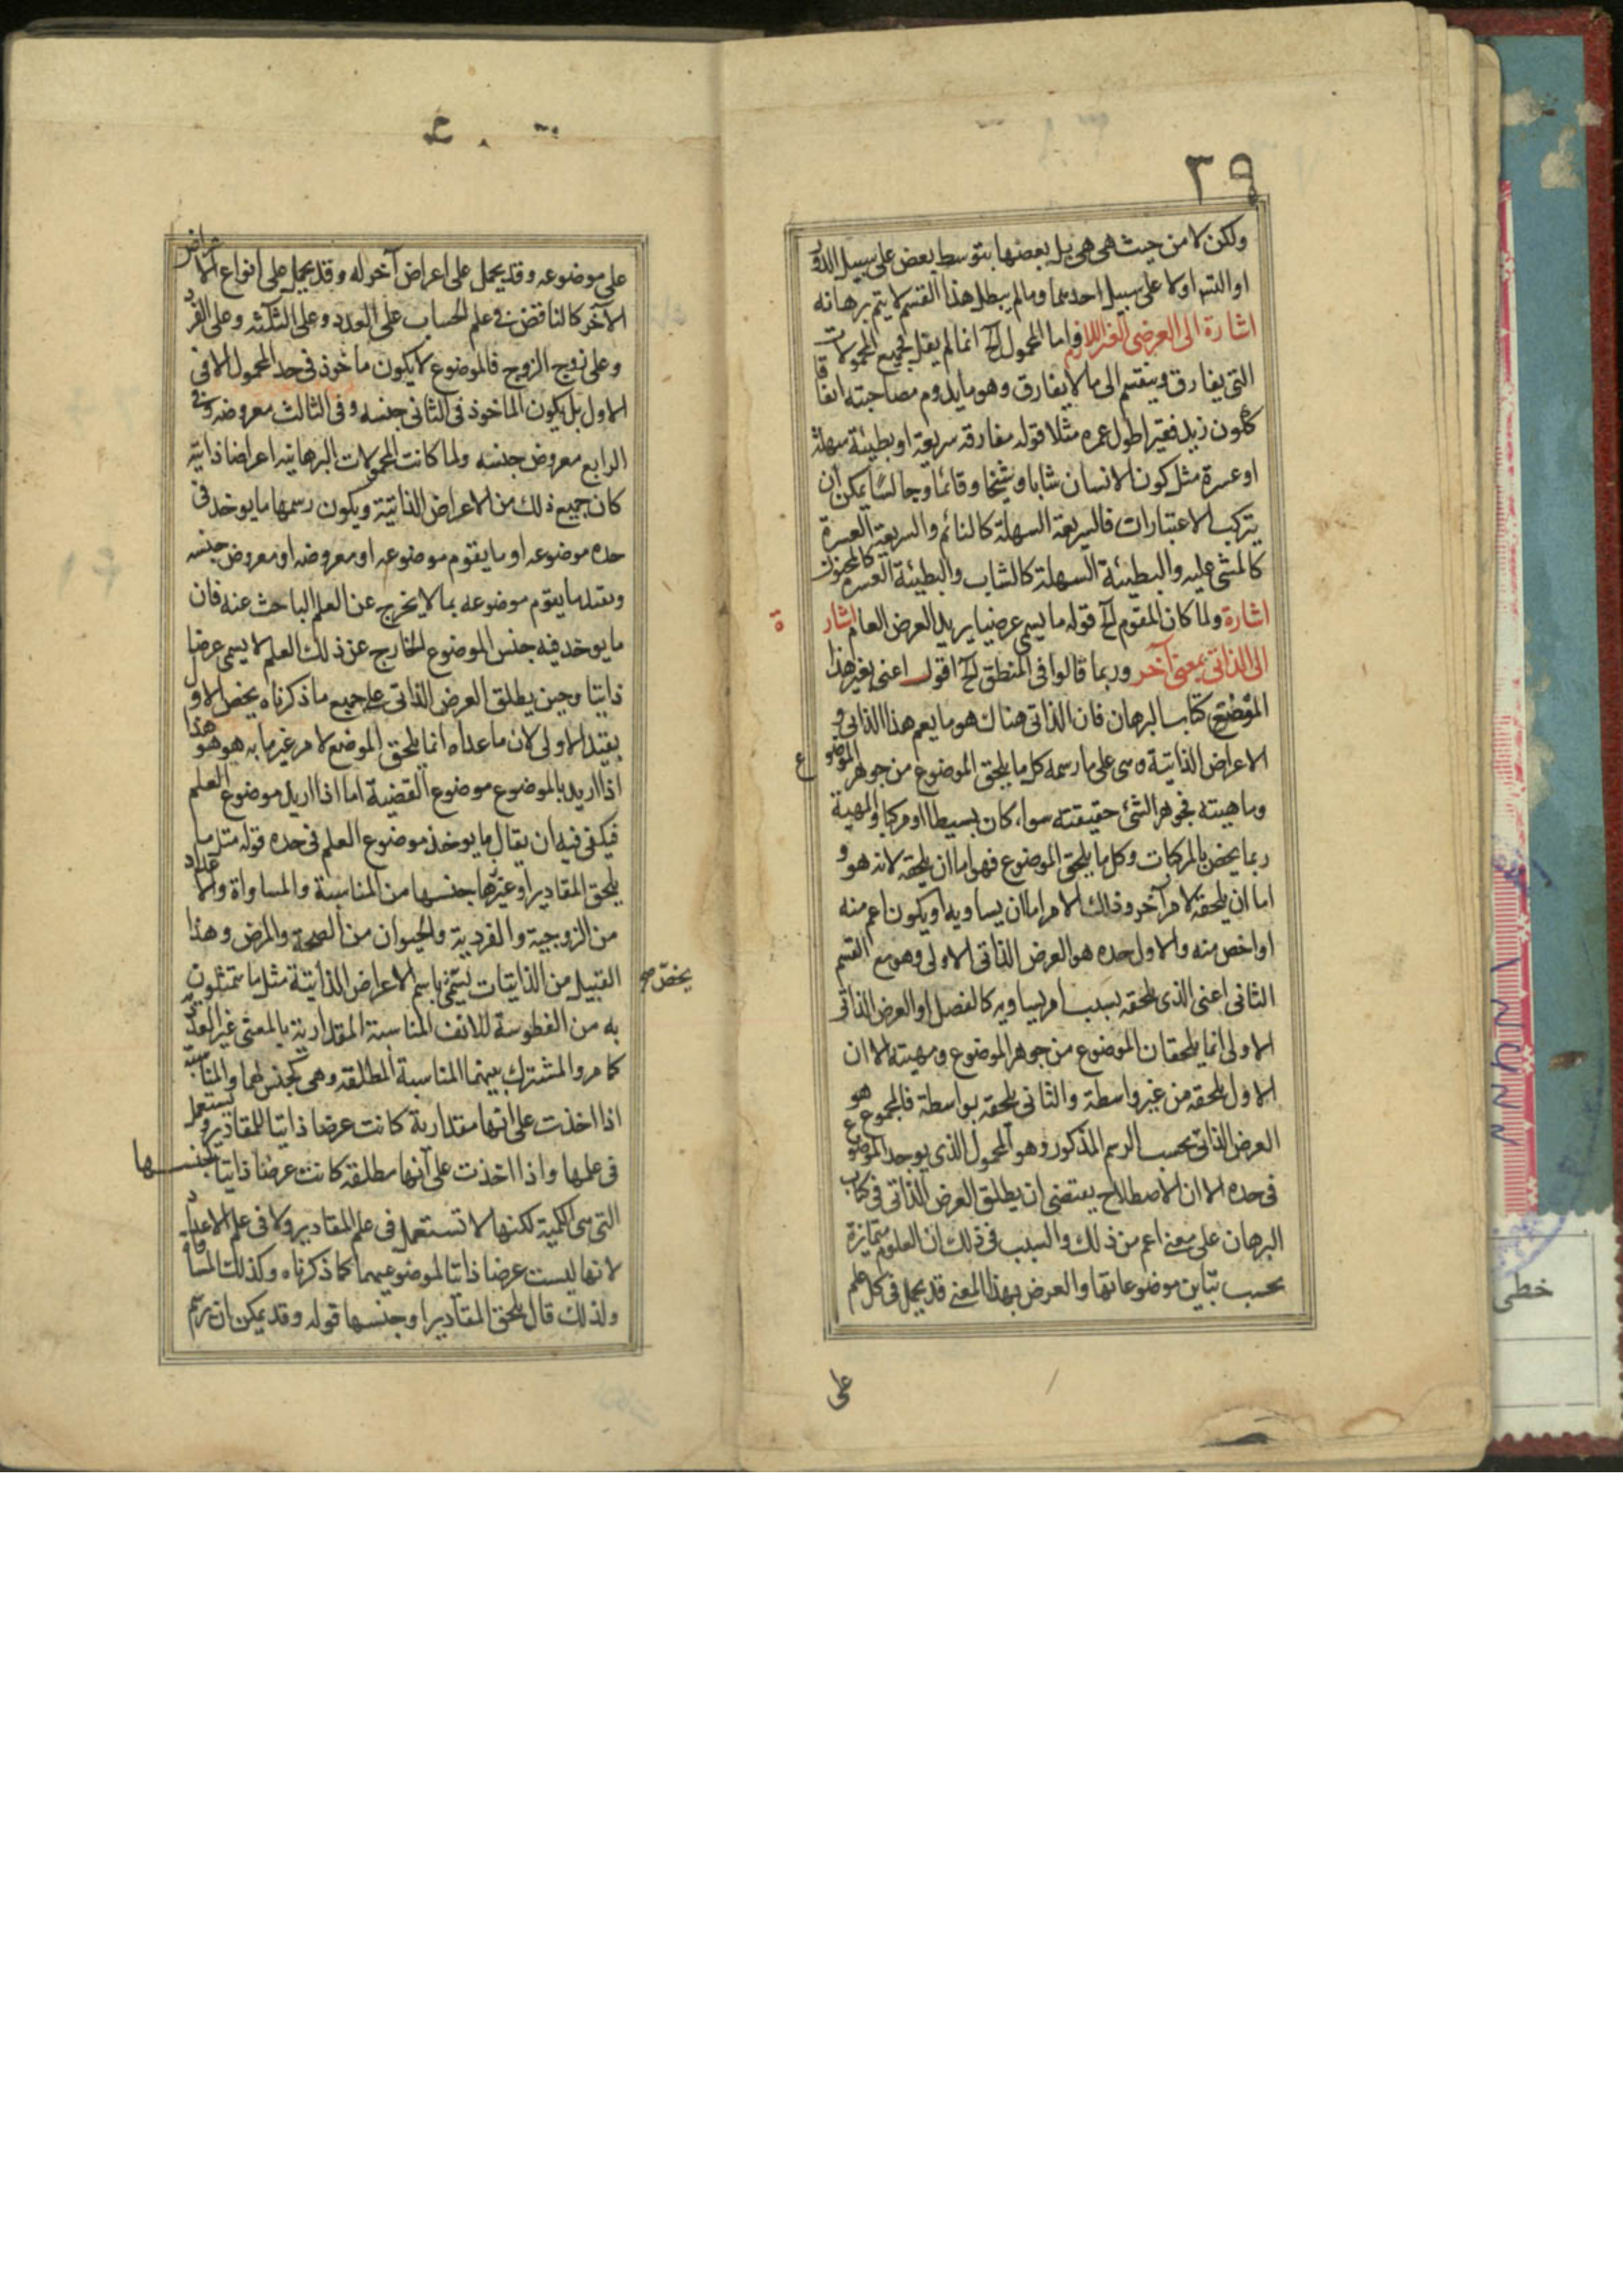 ٣٩
ولكن لا من حيث هى هى بل بعضها بتوسط بعض على سبيل الدور
او التسه اولا على سبيل احدهما ومالم يبطل هذا القسم لا يتم برهانه
اشارة الى العرضى الغير اللازم واما المحمول الخ انما لم يقل لجميع المحمولات
التى يفارق وينقسم الى ما لا يفارق وهو ما يدوم مصاحبته اتفاقا
ككون زيد فقيرا طول عمره مثلا قوله مفارقه سريعة او بطيئة سهلة
او عسرة مثل كون الانسان شابا وشيخا وقائما وجالسا يمكن ان
يتركب الاعتبارات فالسريعة السهلة كالنائم والسريعة العسرة
كالمغشى عليه والبطيئة السهلة كالشاب والبطيئة العسرة كالمجنون
اشارة ولما كان المقوم الخ قوله ما يسمى عرضيا يريد العرض العام اشارة
الى الذاتى بمعنى آخر وربما قالوا فى المنطق الخ اقول اعنى بغير هذا
الموضع كتاب البرهان فان الذاتى هناك هو ما يعم هذا الذاتى و
الاعراض الذاتية هى على ما رسمه كل ما يلحق الموضوع من جوهر الموضوع
وماهيته فجوهر الشئ حقيقته سواء كان بسيطا او مركبا والمهية
ربما يخص بالمركبات وكل ما يلحق الموضوع فهو اما ان يلحقه لانه هو و
اما ان يلحقه لامر آخر وذلك الامر اما ان يساويه او يكون اعم منه
او اخص منه والاول حده هو العرض الذاتى الاولى وهو مع القسم
الثانى اعنى الذى يلحقه بسبب امر يساويه كالفصل او العرض الذاتى
الاولى انما يلحقان الموضوع من جوهر الموضوع ومهيته الا ان
الاول يلحقه من غير واسطة والثانى يلحقه بواسطة فالمجموع هو
العرض الذاتى بحسب الرسم المذكور وهو المحمول الذى يوجد الموضوع
فى حده الا ان الاصطلاح يقتضى ان يطلق العرض الذاتى فى كتاب
البرهان على معنى اعم من ذلك والسبب فى ذلك ان العلوم متمايزة
بحسب تباين موضوعاتها والعرض بهذا المعنى قد يحمل فى كل علم
على
على موضوعه وقد يحمل على اعراض آخر له وقد يحمل على انواع الاعراض
الآخر كالناقض فى علم الحساب على العدد وعلى الثلثه وعلى الفرد
وعلى زوج الزوج فالموضوع لا يكون ماخوذ فى حد المحمول الا فى
الاول بل يكون الماخوذ فى الثانى جنسه وفى الثالث معروضه وفى
الرابع معروض جنسه ولما كانت المحمولات البرهانيه اعراضا ذاتيه
كان جميع ذلك من الاعراض الذاتية ويكون رسمها ما يوخذ فى
حده موضوعه او ما يقوم موضوعه او معروضه او معروض جنسه
ويقيد ما يقوم موضوعه بما لا يخرج عن العلم الباحث عنه فان
ما يوخذ فيه جنس الموضوع الخارج عن ذلك العلم لا يسمى عرضا
ذاتيا وحين يطلق العرض الذاتى على جميع ما ذكرناه يخص الاول
بقيد الاولى لان ما عداه انما يلحق الموضع لامر غير ما به هو هو هذا
اذا اريد بالموضوع موضوع القضية اما اذا اريد موضوع العلم
فيكفى فيه ان يقال ما يوخذ موضوع العلم فى حده قوله مثل ما
يلحق المقادير او غيرها جنسها من المناسبة والمساواة والاعداد
من الزوجية والفردية والحيوان من الصحة والمرض وهذا
القبيل من الذاتيات يسمى باسم الاعراض الذاتية مثل ما يتمثلون
يخص صح
به من الفطوسة للانف المناسبة المقدارية بالمعنى غير العددية
كما مر والمشترك بينهما المناسبة المطلقه وهى كجنس لهما والمناسبة
اذا اخذت على انها مقدارية كانت عرضا ذاتيا للمقادير ويستعمل
فى علمها واذا اخذت على انها مطلقه كانت عرضا ذاتيا لجنسها
التى هى الكمية لكنها لا تستعمل فى علم المقادير ولا فى علم الاعداد
لانها ليست عرضا ذاتيا لموضوعيهما كما ذكرناه وكذلك المساواة
ولذلك قال يلحق المقادير او جنسها قوله وقد يمكن ان يرسم
خطى